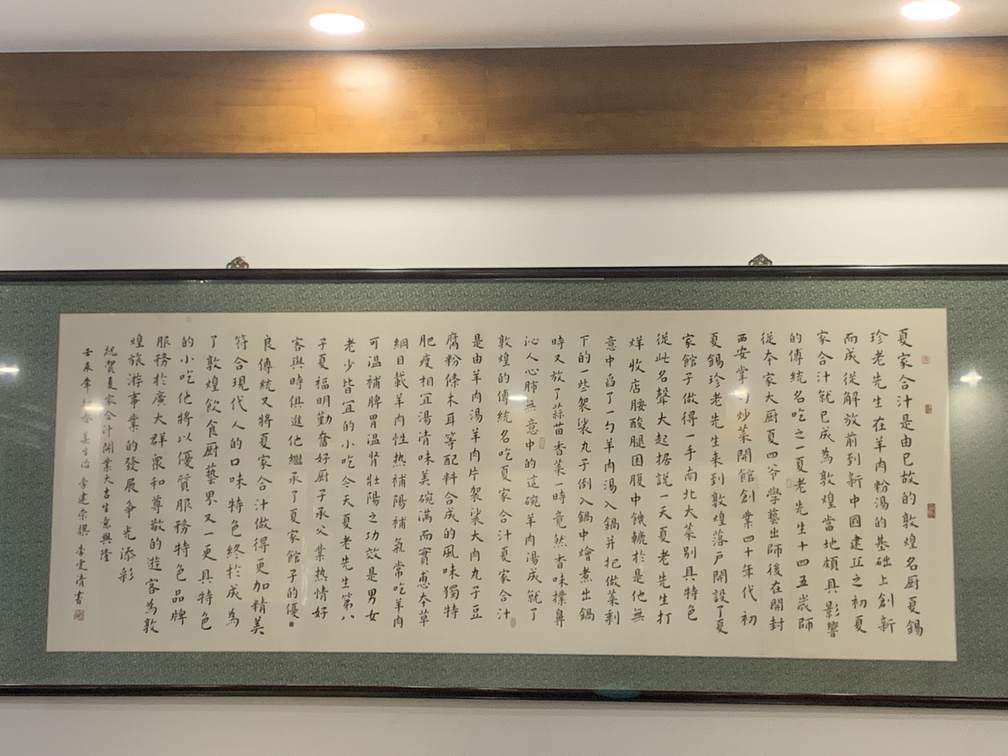 夏家合汁是由已故的敦煌名厨夏錫
珍老先生在羊肉粉湯的基础上創新
而成從解放前到新中國建立之初夏
家合汁就已成為敦煌當地頗具影響
的傳統名吃之一夏老先生十四五歲師
從本家大厨夏四爷學藝出師後在開封
西安掌勺炒菜開館創業四十年代初
夏錫珍老先生来到敦煌落户開設了夏
家館子做得一手南北大菜别具特色
從此名聲大起据説一天夏老先生打
烊收店腰酸腿困腹中饿轆於是他無
意中舀了一勺羊肉湯入鍋并把做菜剩
下的一些袈裟丸子倒入鍋中燴煮出鍋
時又放了蒜苗香菜一時竟然香味撲鼻
沁人心肺無意中的這碗羊肉湯成就了
敦煌的傳統名吃夏家合汁夏家合汁
是由羊肉湯羊肉片袈裟大肉丸子豆
腐粉條木耳等配料合成的風味獨特
肥瘦相宜湯清味美碗满而實惠本草
綱目載羊肉性热補陽補氣常吃羊肉
可温補脾胃温腎壯陽之功效是男女
老少皆宜的小吃今天夏老先生第八
子夏福明勤奮好厨子承父業热情好
客與時俱進他繼承了夏家館子的優
良傳統又將夏家合汁做得更加精美
符合現代人的口味特色終於成為
了敦煌飲食厨藝界又一更具特色
的小吃他將以優質服務特色品牌
服務於廣大群衆和尊敬的遊客為敦
煌旅游事業的發展争光添彩
統賀夏家合汁開業大吉生意興隆
壬辰季 李建榮撰 李雯清書